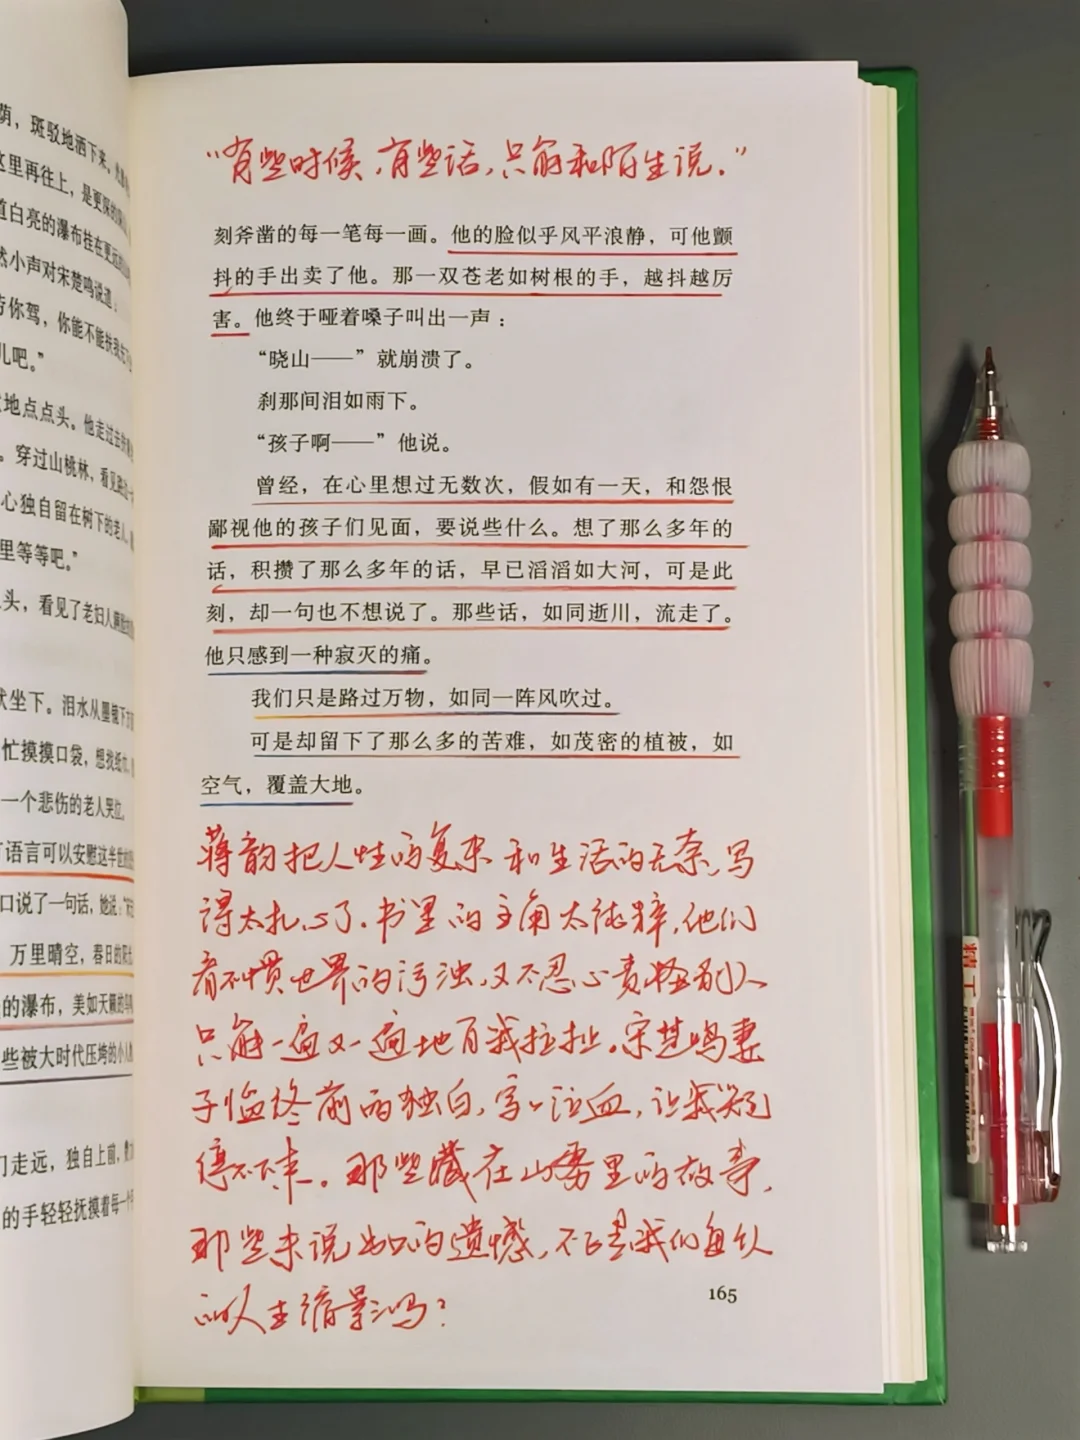 荫，斑驳地洒下来。
这里再往上，是更深的
道白亮的瀑布挂在更远的
然小声对宋楚鸣说道：
劳你驾，你能不能扶我
儿吧。”
地点点头。他走过去
。穿过山桃林，看见
心独自留在树下的老人，
里等等吧。”
头，看见了老妇人
状坐下。泪水从墨镜下
忙摸摸口袋，想找纸巾，
一个悲伤的老人哭泣。
语言可以安慰这半世的
口说了一句话，她说：
万里晴空，春日的阳光
的瀑布，美如天籁的鸟
些被大时代压垮的小人
门走远，独自上前，
的手轻轻抚摸着每一个
“有些时候，有些话，只能和陌生说。”
刻斧凿的每一笔每一画。他的脸似乎风平浪静，可他颤
抖的手出卖了他。那一双苍老如树根的手，越抖越厉
害。他终于哑着嗓子叫出一声：
“晓山——”就崩溃了。
刹那间泪如雨下。
“孩子啊——”他说。
曾经，在心里想过无数次，假如有一天，和怨恨
鄙视他的孩子们见面，要说些什么。想了那么多年的
话，积攒了那么多年的话，早已滔滔如大河，可是此
刻，却一句也不想说了。那些话，如同逝川，流走了。
他只感到一种寂灭的痛。
我们只是路过万物，如同一阵风吹过。
可是却留下了那么多的苦难，如茂密的植被，如
空气，覆盖大地。
蒋韵把人性的复杂和生活的无奈，写
得太扎心了。书里的主角太纯粹，他们
看不惯世界的污浊，又不忍心责怪别人
只能一遍又一遍地自我拉扯。宋楚鸣妻
子临终前的独白，字字泣血，让我哭到
停不下来。那些藏在山雾里的故事，
那些未说出口的遗憾，不正是我们每个人
的人生缩影吗？
165